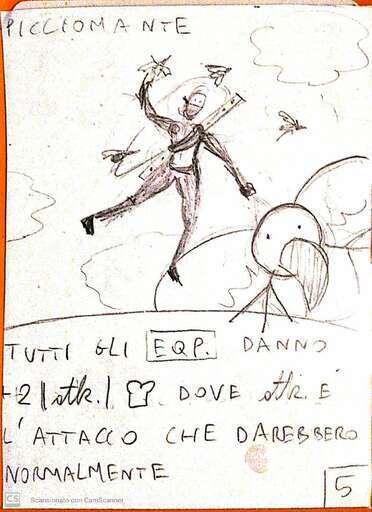 PICCIOMANTE
TUTTI GLI EQP. DANNO
+2|atk.| . DOVE atk. È
L'ATTACCO CHE DAREBBERO
NORMALMENTE
5
CS Scansionato con CamScanner